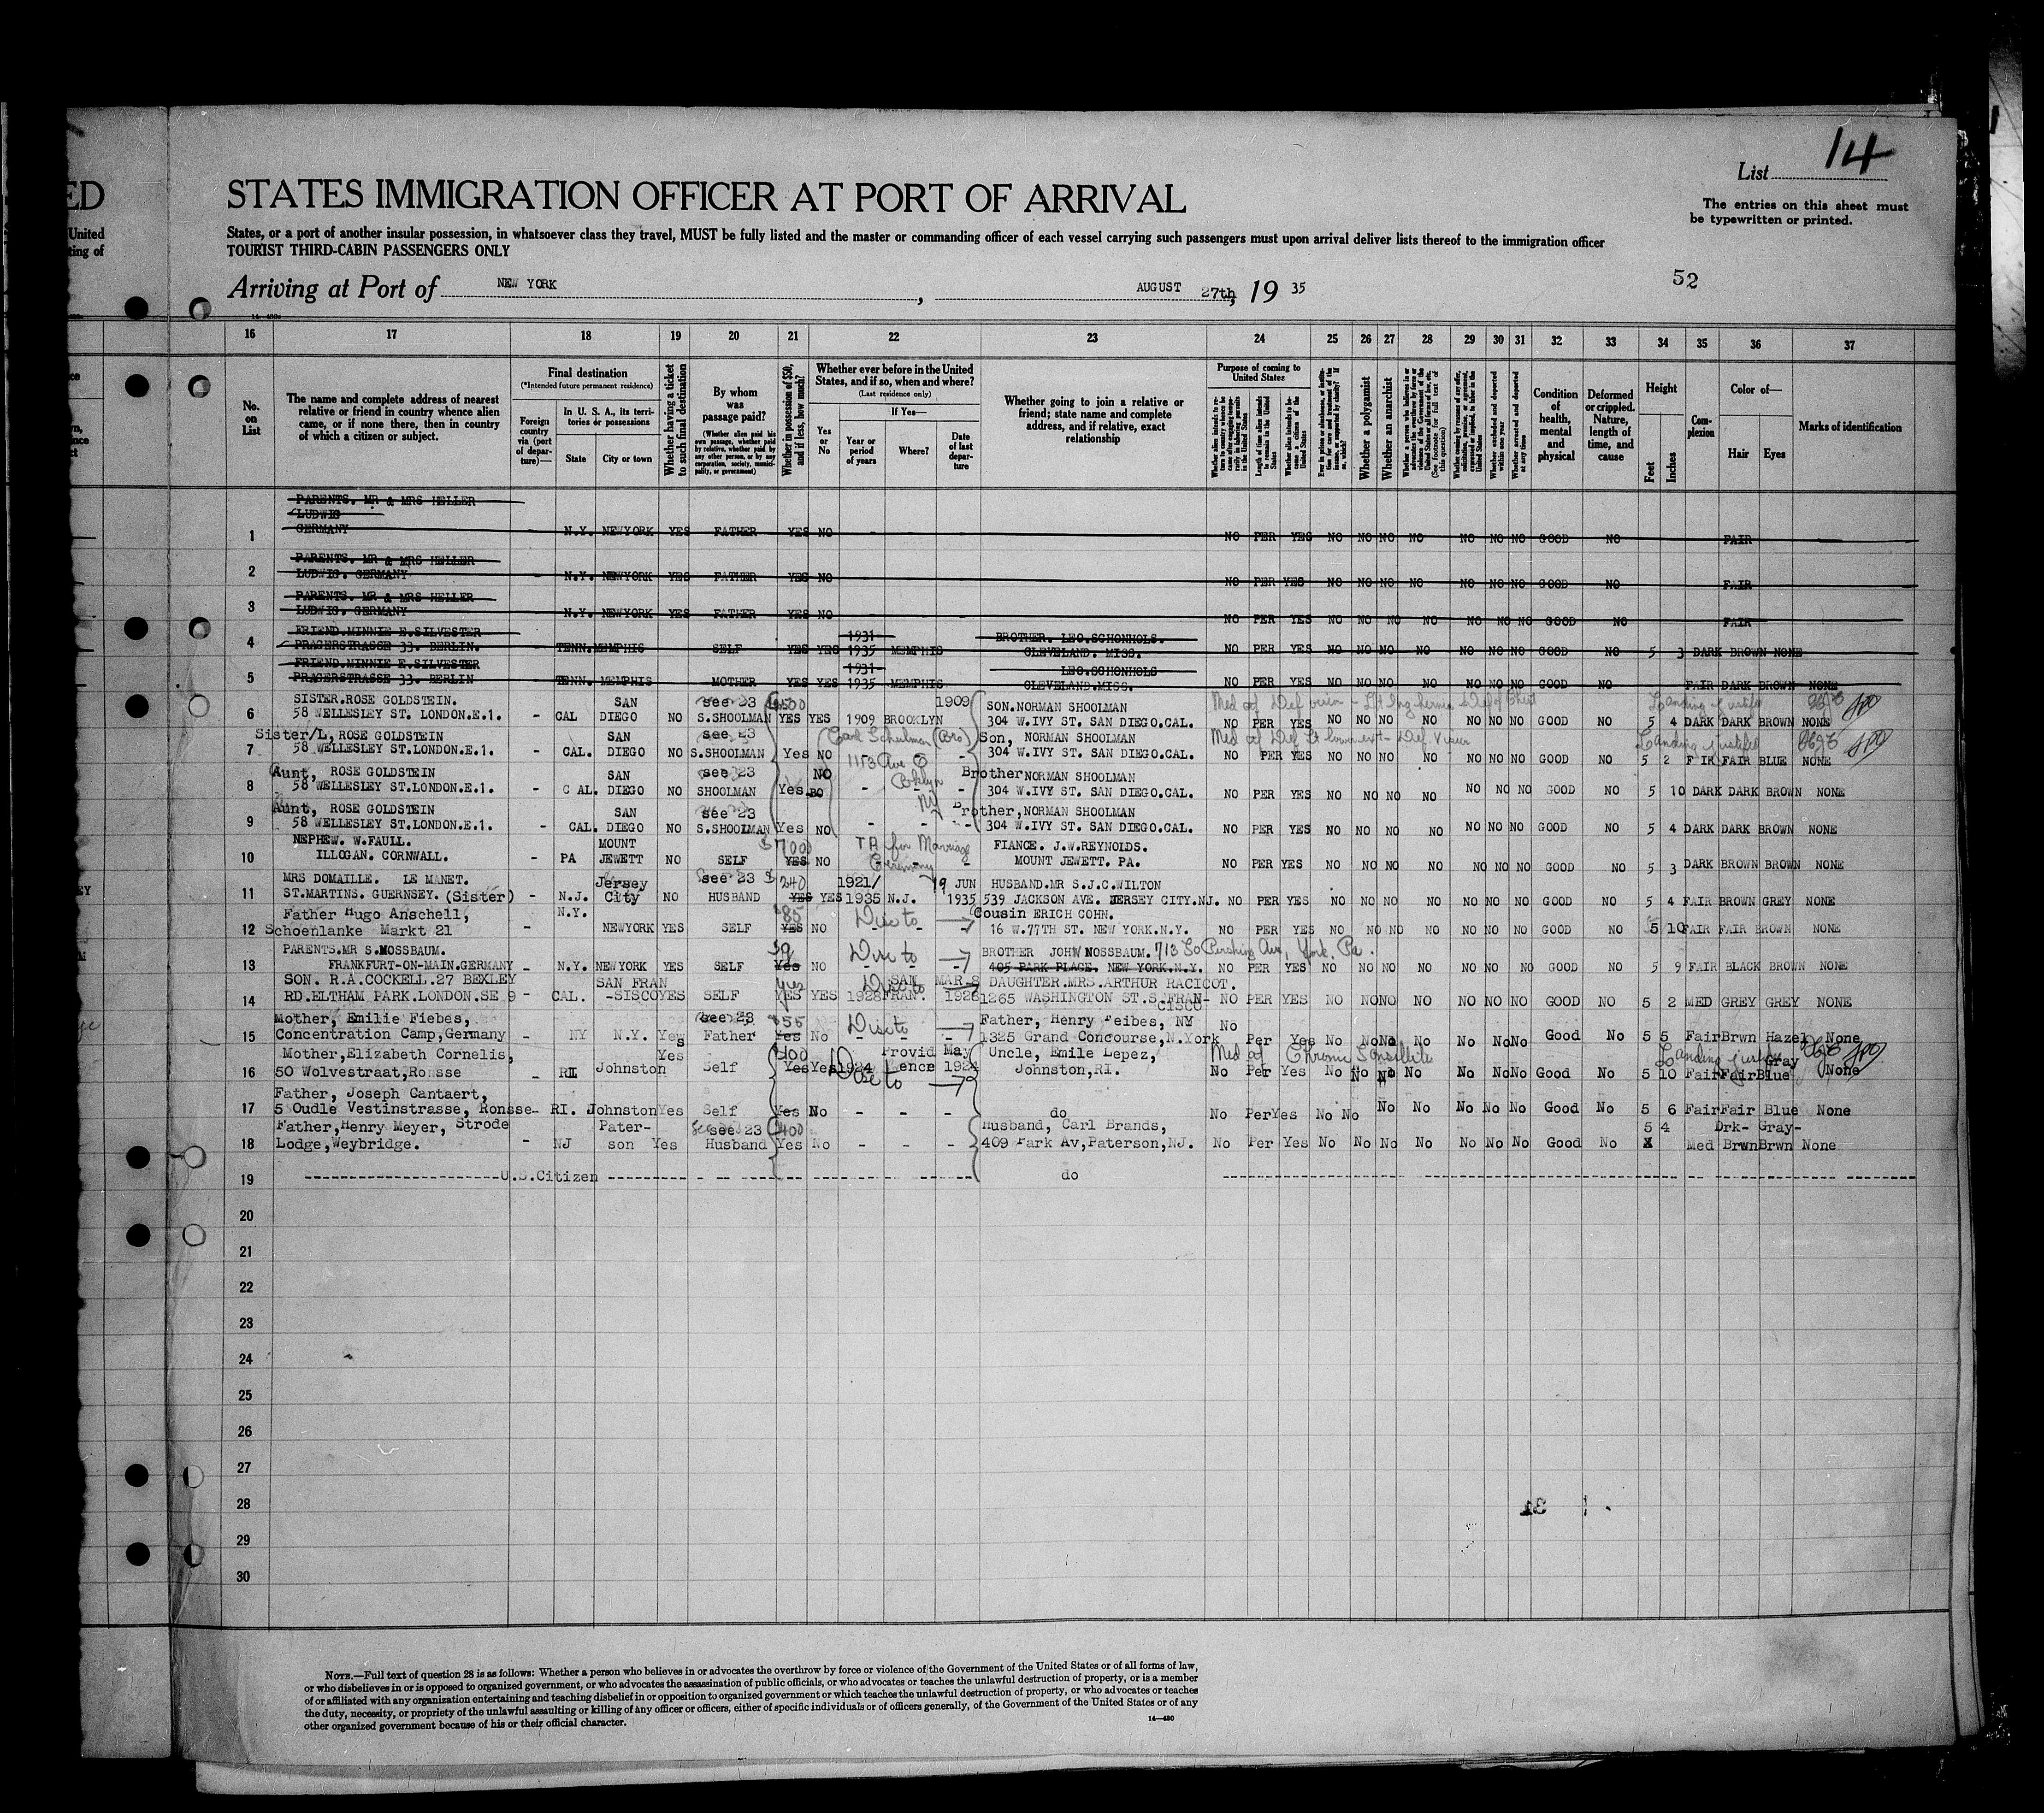 ED
United
ting of
List 14
STATES IMMIGRATION OFFICER AT PORT OF ARRIVAL
The entries on this sheet must
be typewritten or printed.
States, or a port of another insular possession, in whatsoever class they travel, MUST be fully listed and the master or commanding officer of each vessel carrying such passengers must upon arrival deliver lists thereof to the immigration officer
TOURIST THIRD-CABIN PASSENGERS ONLY
52
Arriving at Port of NEW YORK, AUGUST 27th, 19 35
16 17 18 19 20 21 22 23 24 25 26 27 28 29 30 31 32 33 34 35 36 37
No. on List
The name and complete address of nearest relative or friend in country whence alien came, or if none there, then in country of which a citizen or subject.
Final destination
(*Intended future permanent residence)
Foreign country via (port of departure)—
In U. S. A., its territories or possessions
State
City or town
Whether having a ticket to such final destination
By whom was passage paid?
(Whether alien paid his own passage, whether paid by relative, whether paid by any other person, or by any corporation, society, municipality, or government)
Whether in possession of $50, and if less, how much?
Whether ever before in the United States, and if so, when and where?
(Last residence only)
Yes or No
If Yes—
Year or period of years
Where?
Date of last departure
Whether going to join a relative or friend; state name and complete address, and if relative, exact relationship
Purpose of coming to United States
Length of time alien intends to remain in the United States
Whether alien intends to become a citizen of the United States
Whether a polygamist
Whether an anarchist
(See footnote for full text of this question)
Whether excluded and deported within one year
Whether arrested and deported at any time
Condition of health, mental and physical
Deformed or crippled. Nature, length of time, and cause
Height
Feet
Inches
Complexion
Color of—
Hair
Eyes
Marks of identification
PARENTS. MR & MRS HELLER
LUDWIG
1 GERMANY - N.Y. NEWYORK YES FATHER YES NO - - - NO PER YES NO NO NO NO NO NO NO GOOD NO FAIR
PARENTS. MR & MRS HELLER
2 LUDWIG. GERMANY - N.Y. NEWYORK YES FATHER YES NO NO PER YES NO NO NO NO NO NO NO GOOD NO FAIR
PARENTS. MR & MRS HELLER
3 LUDWIG. GERMANY - N.Y. NEWYORK YES FATHER YES NO - - - NO PER YES NO NO NO NO NO NO NO GOOD NO FAIR
FRIEND.MINNIE E.SILVESTER 1931- BROTHER. LEO.SCHONHOLS.
4 PRAGERSTRASSE 33. BERLIN. - TENN. MEMPHIS SELF YES YES 1935 MEMPHIS CLEVELAND. MISS. NO PER YES NO NO NO NO NO NO NO GOOD NO 5 3 DARK BROWN NONE
FRIEND.MINNIE E.SILVESTER 1931- LEO.SCHONHOLS
5 PRAGERSTRASSE 33. BERLIN TENN. MEMPHIS MOTHER YES YES 1935 MEMPHIS CLEVELAND.MISS. NO PER YES NO NO NO NO NO NO NO GOOD NO FAIR DARK BROWN NONE
SISTER.ROSE GOLDSTEIN. SAN see 23 1909 SON.NORMAN SHOOLMAN
6 58 WELLESLEY ST. LONDON.E.1. - CAL DIEGO NO S.SHOOLMAN YES YES 1909 BROOKLYN 304 W.IVY ST. SAN DIEGO.CAL. NO PER YES NO NO NO NO NO NO NO GOOD NO 5 4 DARK DARK BROWN NONE
Sister/L, ROSE GOLDSTEIN SAN see 23 (Bro) Son, NORMAN SHOOLMAN
7 58 WELLESLEY ST.LONDON.E.1. - CAL. DIEGO NO S.SHOOLMAN Yes NO 304 W.IVY ST. SAN DIEGO.CAL. NO PER YES NO NO NO NO NO NO NO GOOD NO 5 2 F IR FAIR BLUE NONE
1153 Ave
Aunt, ROSE GOLDSTEIN SAN see 23 NO Brother NORMAN SHOOLMAN
8 58 WELLESLEY ST.LONDON.E.1. - C AL. DIEGO NO SHOOLMAN Yes - - - 304 W.IVY ST. SAN DIEGO.CAL. NO PER YES NO NO NO NO NO NO NO GOOD NO 5 10 DARK DARK BROWN NONE
NY
Aunt, ROSE GOLDSTEIN SAN see 23 Brother, NORMAN SHOOLMAN
9 58 WELLESLEY ST.LONDON.E.1. - CAL. DIEGO NO S.SHOOLMAN Yes NO - - - 304 W.IVY ST. SAN DIEGO.CAL. NO PER YES NO NO NO NO NO NO NO GOOD NO 5 4 DARK DARK BROWN NONE
NEPHEW. W.FAULL. MOUNT for Marriage FIANCE. J.W.REYNOLDS.
10 ILLOGAN. CORNWALL. - PA JEWETT NO SELF YES NO Ceremony MOUNT JEWETT. PA. NO PER YES NO NO NO NO NO NO NO GOOD NO 5 3 DARK BROWN BROWN NONE
MRS DOMAILLE. LE MANET. Jersey see 23 $240 1921/ 19 JUN HUSBAND.MR S.J.C.WILTON
11 ST.MARTINS. GUERNSEY. (Sister) - N.J. City NO HUSBAND YES YES 1935 N.J. 1935 539 JACKSON AVE. JERSEY CITY.NJ. NO PER YES NO NO NO NO NO NO NO GOOD NO 5 4 FAIR BROWN GREY NONE
Father Hugo Anschell, N.Y. $85 Cousin ERICH COHN.
12 Schoenlanke Markt 21 - NEWYORK YES SELF YES NO - - - 16 W.77TH ST. NEW YORK.N.Y. NO PER YES NO NO NO NO NO NO NO GOOD NO 5 10 FAIR FAIR BROWN NONE
PARENTS.MR S.MOSSBAUM. $9 BROTHER JOHN NOSSBAUM. 713 So Pershing Ave, York. Pa.
13 FRANKFURT-ON-MAIN.GERMANY - N.Y. NEWYORK YES SELF Yes NO - - - 405 PARK PLACE. NEW YORK.N.Y. NO PER YES NO NO NO NO NO NO NO GOOD NO 5 9 FAIR BLACK BROWN NONE
SON. R.A.COCKELL.27 BEXLEY SAN FRAN yes SAN MAR.8 DAUGHTER.MRS.ARTHUR RACICOT.
14 RD.ELTHAM PARK.LONDON.SE 9 - CAL. -SISCO YES SELF YES YES 1928 FRAN. 1928 1265 WASHINGTON ST.S.FRAN- NO PER YES NO NO NO NO NO NO NO GOOD NO 5 2 MED GREY GREY NONE
CISCO
Mother, Emilie Fiebes, see 23 $55 Father, Henry Feibes, NY
15 Concentration Camp,Germany - NY N.Y. Yes Father Yes No - - - 1325 Grand Concourse,N.York No Per Yes No No No No No No No Good No 5 5 Fair Brwn Hazel None
Mother,Elizabeth Cornelis, Yes $400 Provid May Uncle, Emile Lepez, Gray
16 50 Wolvestraat,Ronsse - RI Johnston Self Yes Yes 1924 ence 1924 Johnston,RI. No Per Yes No No No No No No No Good No 5 10 Fair Fair Blue None
Father, Joseph Cantaert,
17 5 Oudle Vestinstrasse, Ronsse - RI. Johnston Yes Self Yes No - - - do No Per Yes No No No No No No No Good No 5 6 Fair Fair Blue None
Father,Henry Meyer, Strode Pater- see 23 $400 Husband, Carl Brands, 5 4 Drk- Gray-
18 Lodge,Weybridge. - NJ son Yes Husband Yes No - - - 409 Park Av,Paterson,NJ. No Per Yes No No No No No No No Good No Med Brwn Brwn None
19 ---U.S.Citizen --- do ---
20
21
22
23
24
25
26
27
28
29
30
NOTE.—Full text of question 28 is as follows: Whether a person who believes in or advocates the overthrow by force or violence of the Government of the United States or of all forms of law,
or who disbelieves in or is opposed to organized government, or who advocates the assassination of public officials, or who advocates or teaches the unlawful destruction of property, or is a member
of or affiliated with any organization entertaining and teaching disbelief in or opposition to organized government or which teaches the unlawful destruction of property, or who advocates or teaches
the duty, necessity, or propriety of the unlawful assaulting or killing of any officer or officers, either of specific individuals or of officers generally, of the Government of the United States or of any
other organized government because of his or their official character.
14—430